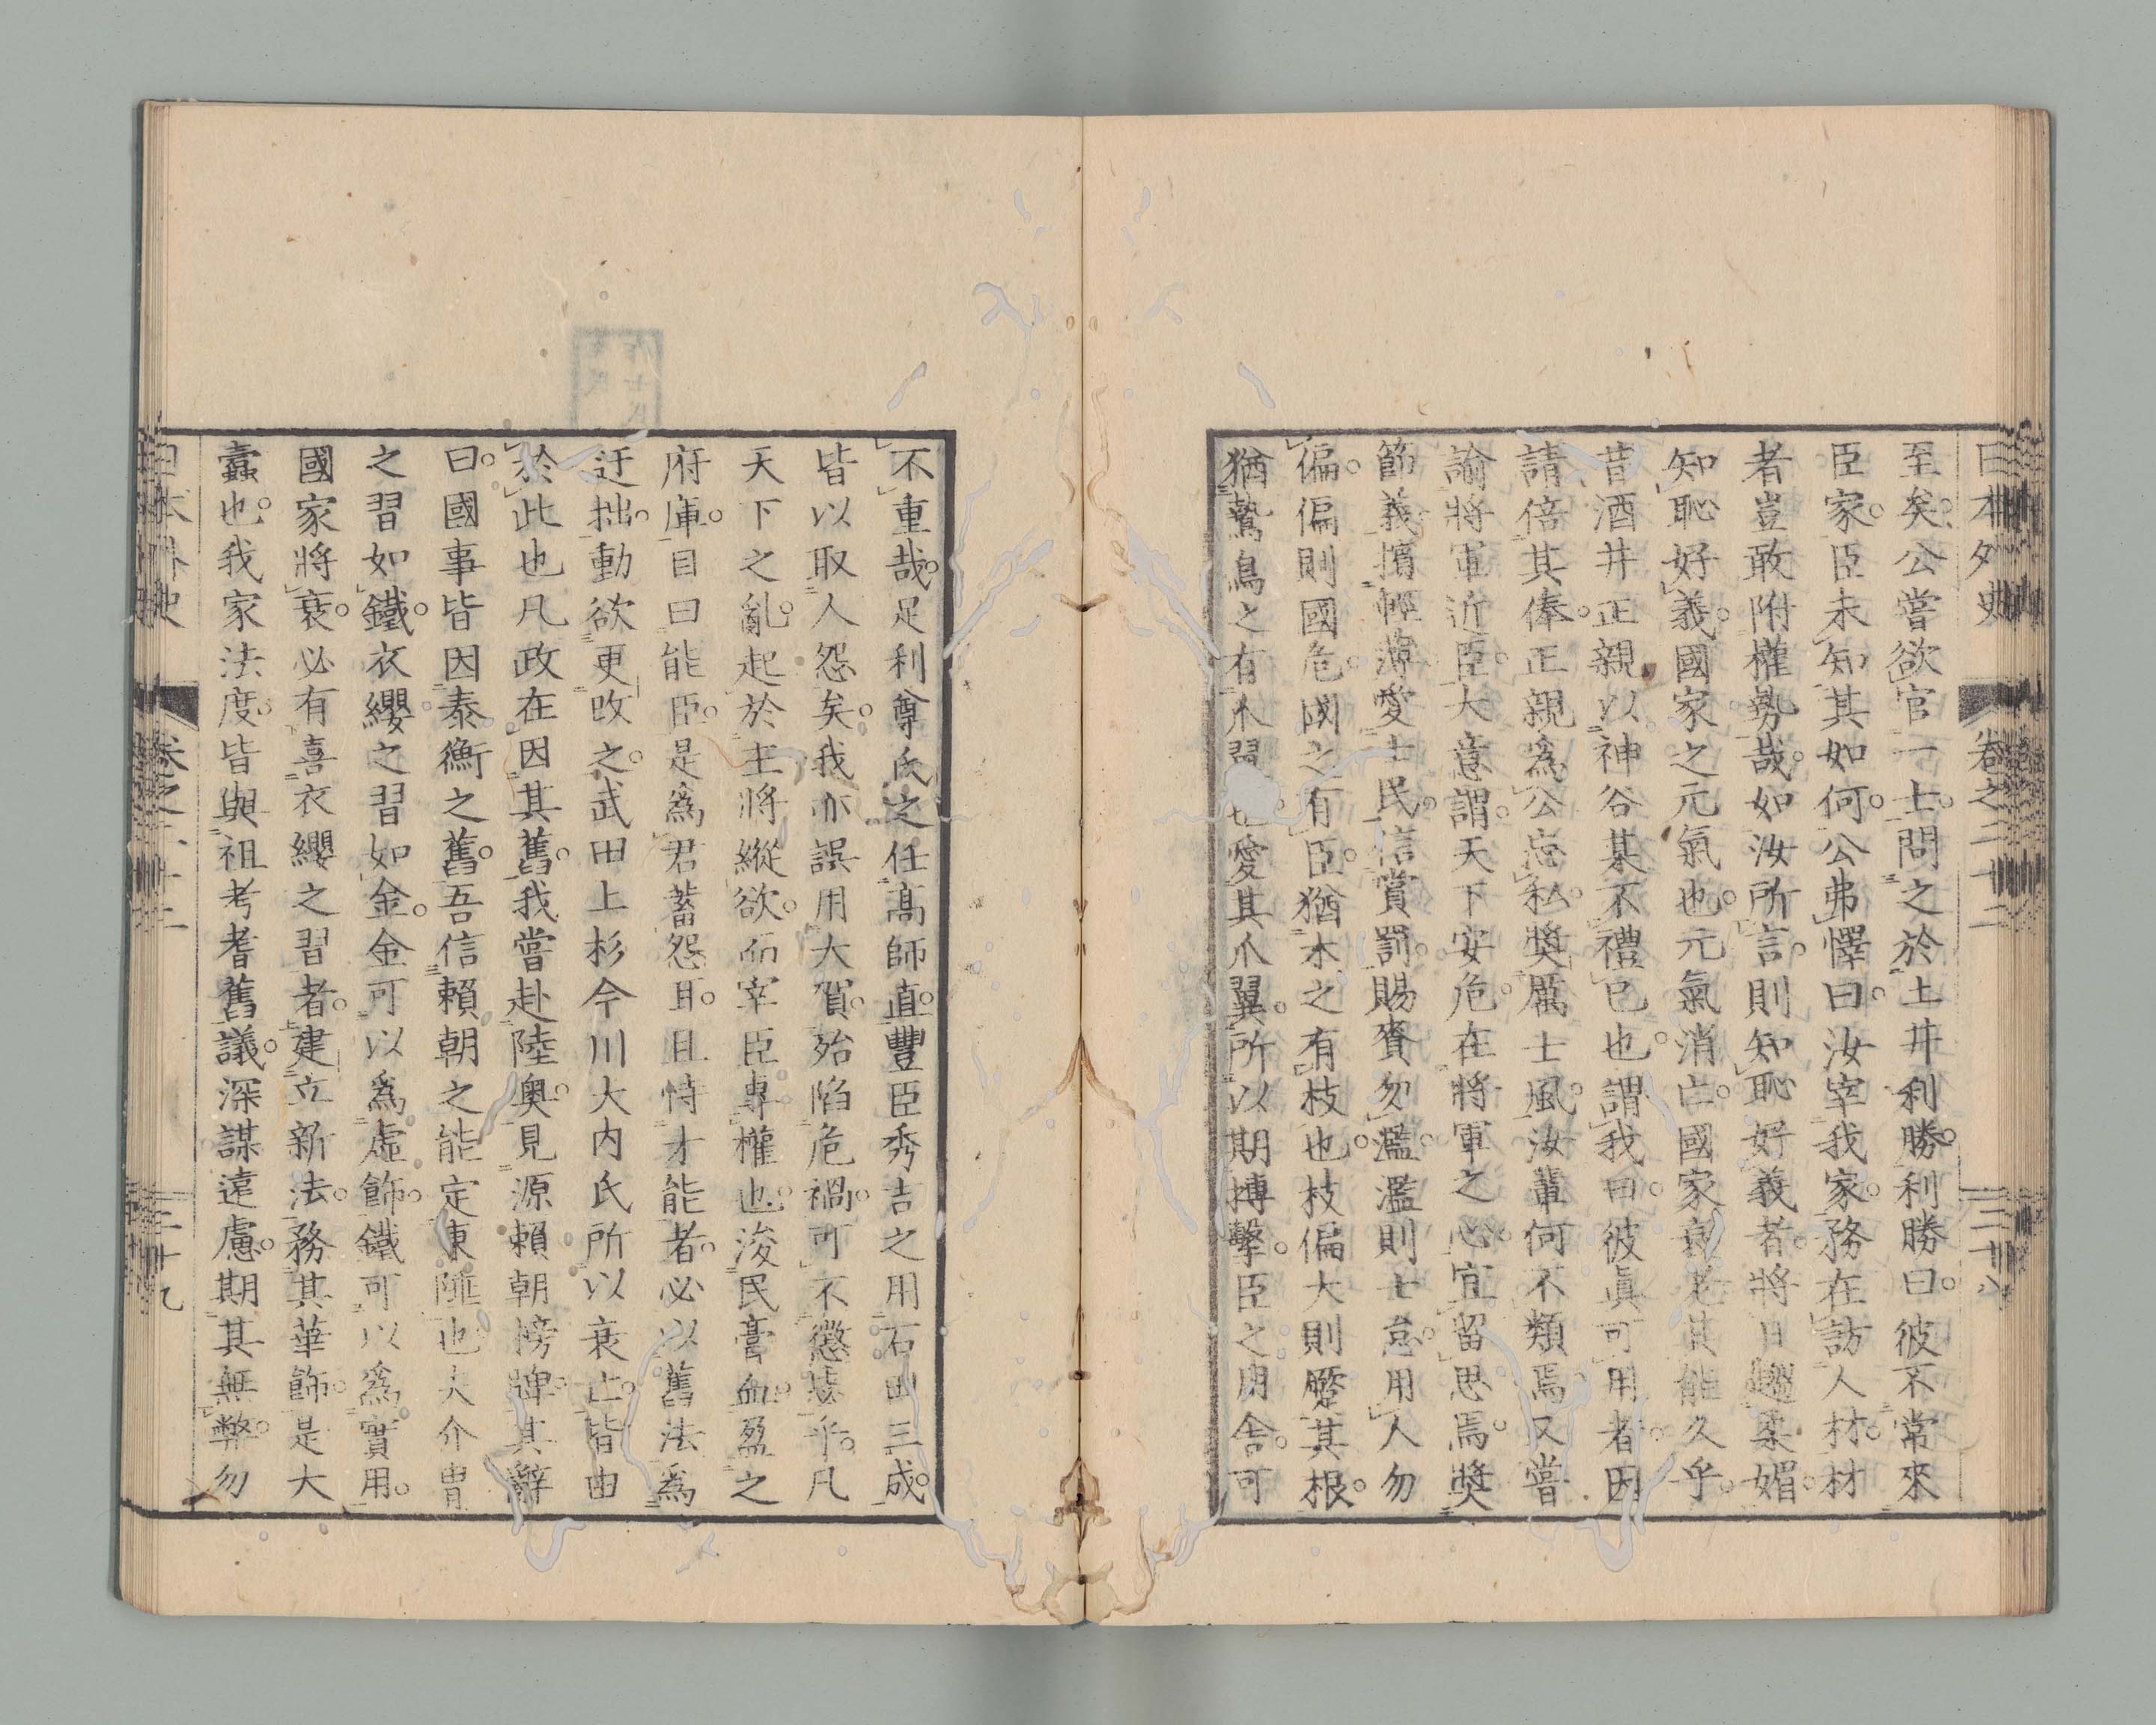 日本外史 卷之二十二 三十八
至矣。公嘗欲官一士。問之於土井利勝。利勝曰。彼不常來
臣家。臣未知其如何。公弗懌曰。汝宰我家。務在訪人材。材
者豈敢附權勢哉。如汝所言。則知恥好義者。將日趨柔媚。
知恥好義。國家之元氣也。元氣消亡。國家衰老。其能久乎。
昔酒井正親以神谷某不禮已也。謂我曰。彼眞可用者。因
請倍其俸。正親爲公忘私。奬厲士風。汝輩何不類焉。又嘗
諭將軍近臣。大意謂。天下安危。在將軍之心。宜留思焉。奬
節義。擯輕薄。愛士民。信賞罰。賜賚勿濫。濫則士怠。用人勿
偏。偏則國危。國之有臣。猶木之有枝也。枝偏大則蹙其根。
猶鷙鳥之有爪翼也。愛其爪翼。所以期搏擊。臣之用舍。可
不重哉。足利尊氏之任高師直。豐臣秀吉之用石田三成。
皆以取人怨矣。我亦誤用大賀。殆陷危禍。可不懲毖乎。凡
天下之亂。起於主將縱欲。而宰臣專權也。浚民膏血。盈之
府庫。目曰能臣。是爲君蓄怨耳。且恃才能者。必以舊法爲
迂拙。動欲更改之。武田上杉今川大内氏所以衰亡。皆由
於此也。凡政在因其舊。我嘗赴陸奧。見源賴朝榜牌。其辭
曰。國事皆因泰衡之舊。吾信賴朝之能定東陲也。夫介冑
之習如鐵。衣纓之習如金。金可以爲虛飾。鐵可以爲實用。
國家將衰。必有喜衣纓之習者。建立新法。務其華飾。是大
蠹也。我家法度。皆與祖考耆舊議。深謀遠慮。期其無弊。勿
日本外史 卷之二十二 三十九